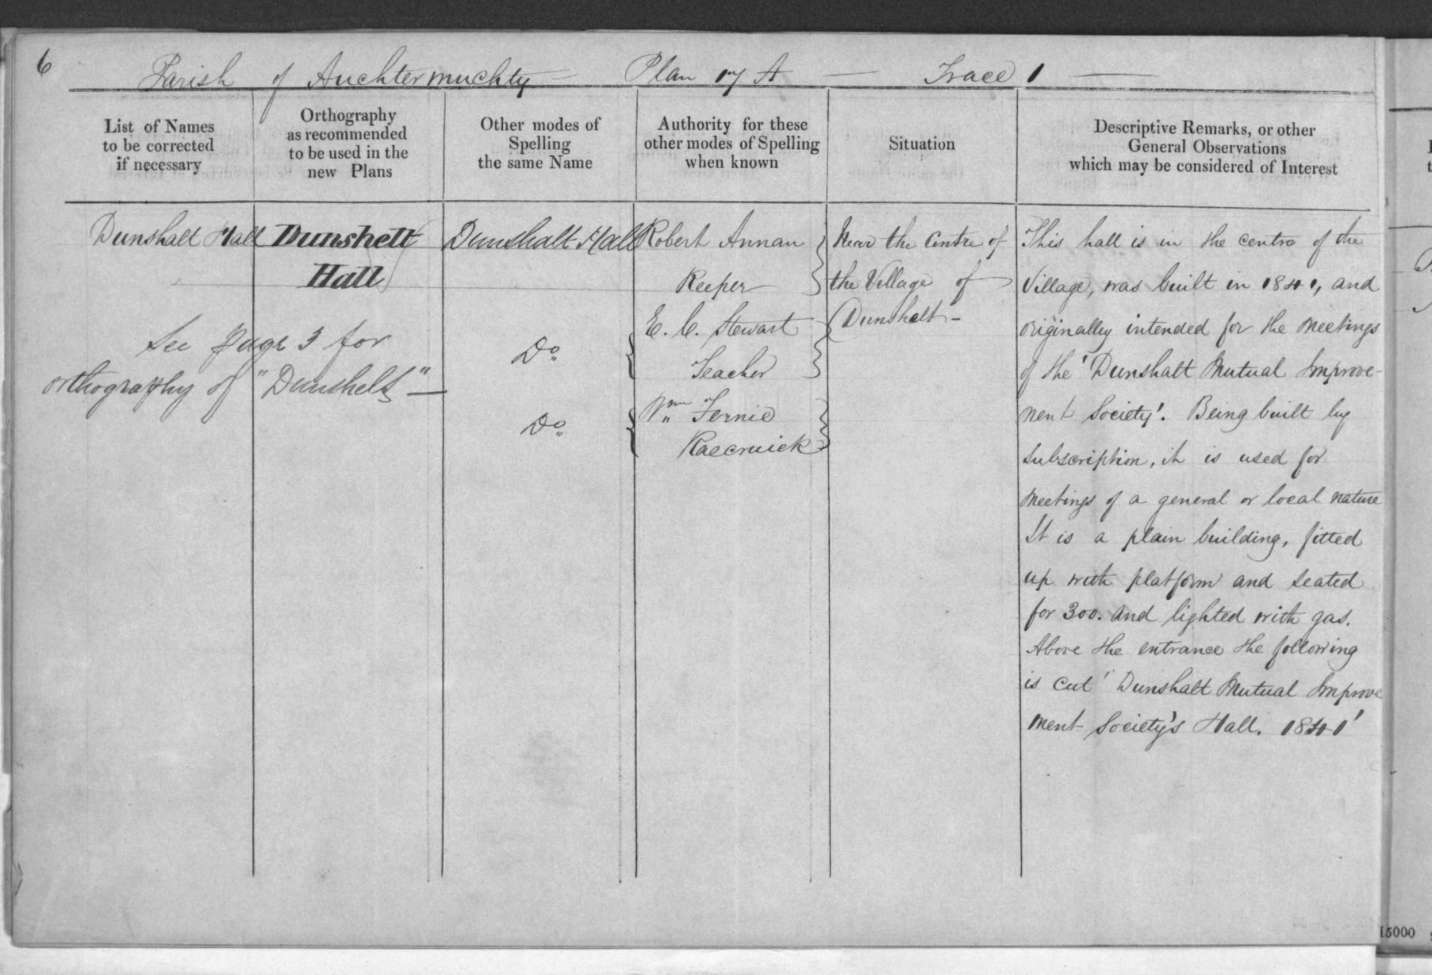 6
Parish of Auchtermuchty — Plan 17 A — Trace 1 —
List of Names
to be corrected
if necessary
Orthography
as recommended
to be used in the
new Plans
Other modes of
Spelling
the same Name
Authority for these
other modes of Spelling
when known
Situation
Descriptive Remarks, or other
General Observations
which may be considered of Interest
Dunshalt Hall
Dunshelt
Hall
See page 3 for
orthography of "Dunshelt" —
Dunshalt Hall
Do.
Do.
Robert Annan
Keeper
E. C. Stewart
Teacher
Wm. Fernie
Near the Centre of
the Village of
Dunshelt —
This hall is in the centre of the
Village, was built in 1841, and
originally intended for the meetings
of the 'Dunshalt Mutual Improve-
ment Society'. Being built by
subscription, it is used for
meetings of a general or local nature
It is a plain building, fitted
up with platform and seated
for 300. and lighted with gas.
Above the entrance the following
is cut 'Dunshalt Mutual Improve
ment Society's Hall. 1841'
15000